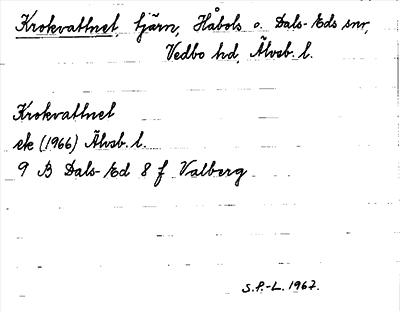 Krokvattnet, tjärn, Håbols o. Dals-Eds snr,
Vedbo hd, Älvsb. l.
Krokvattnet
ek (1966) Älvsb. l.
9 B Dals-Ed 8 f Valberg
S.P.-L. 1967.